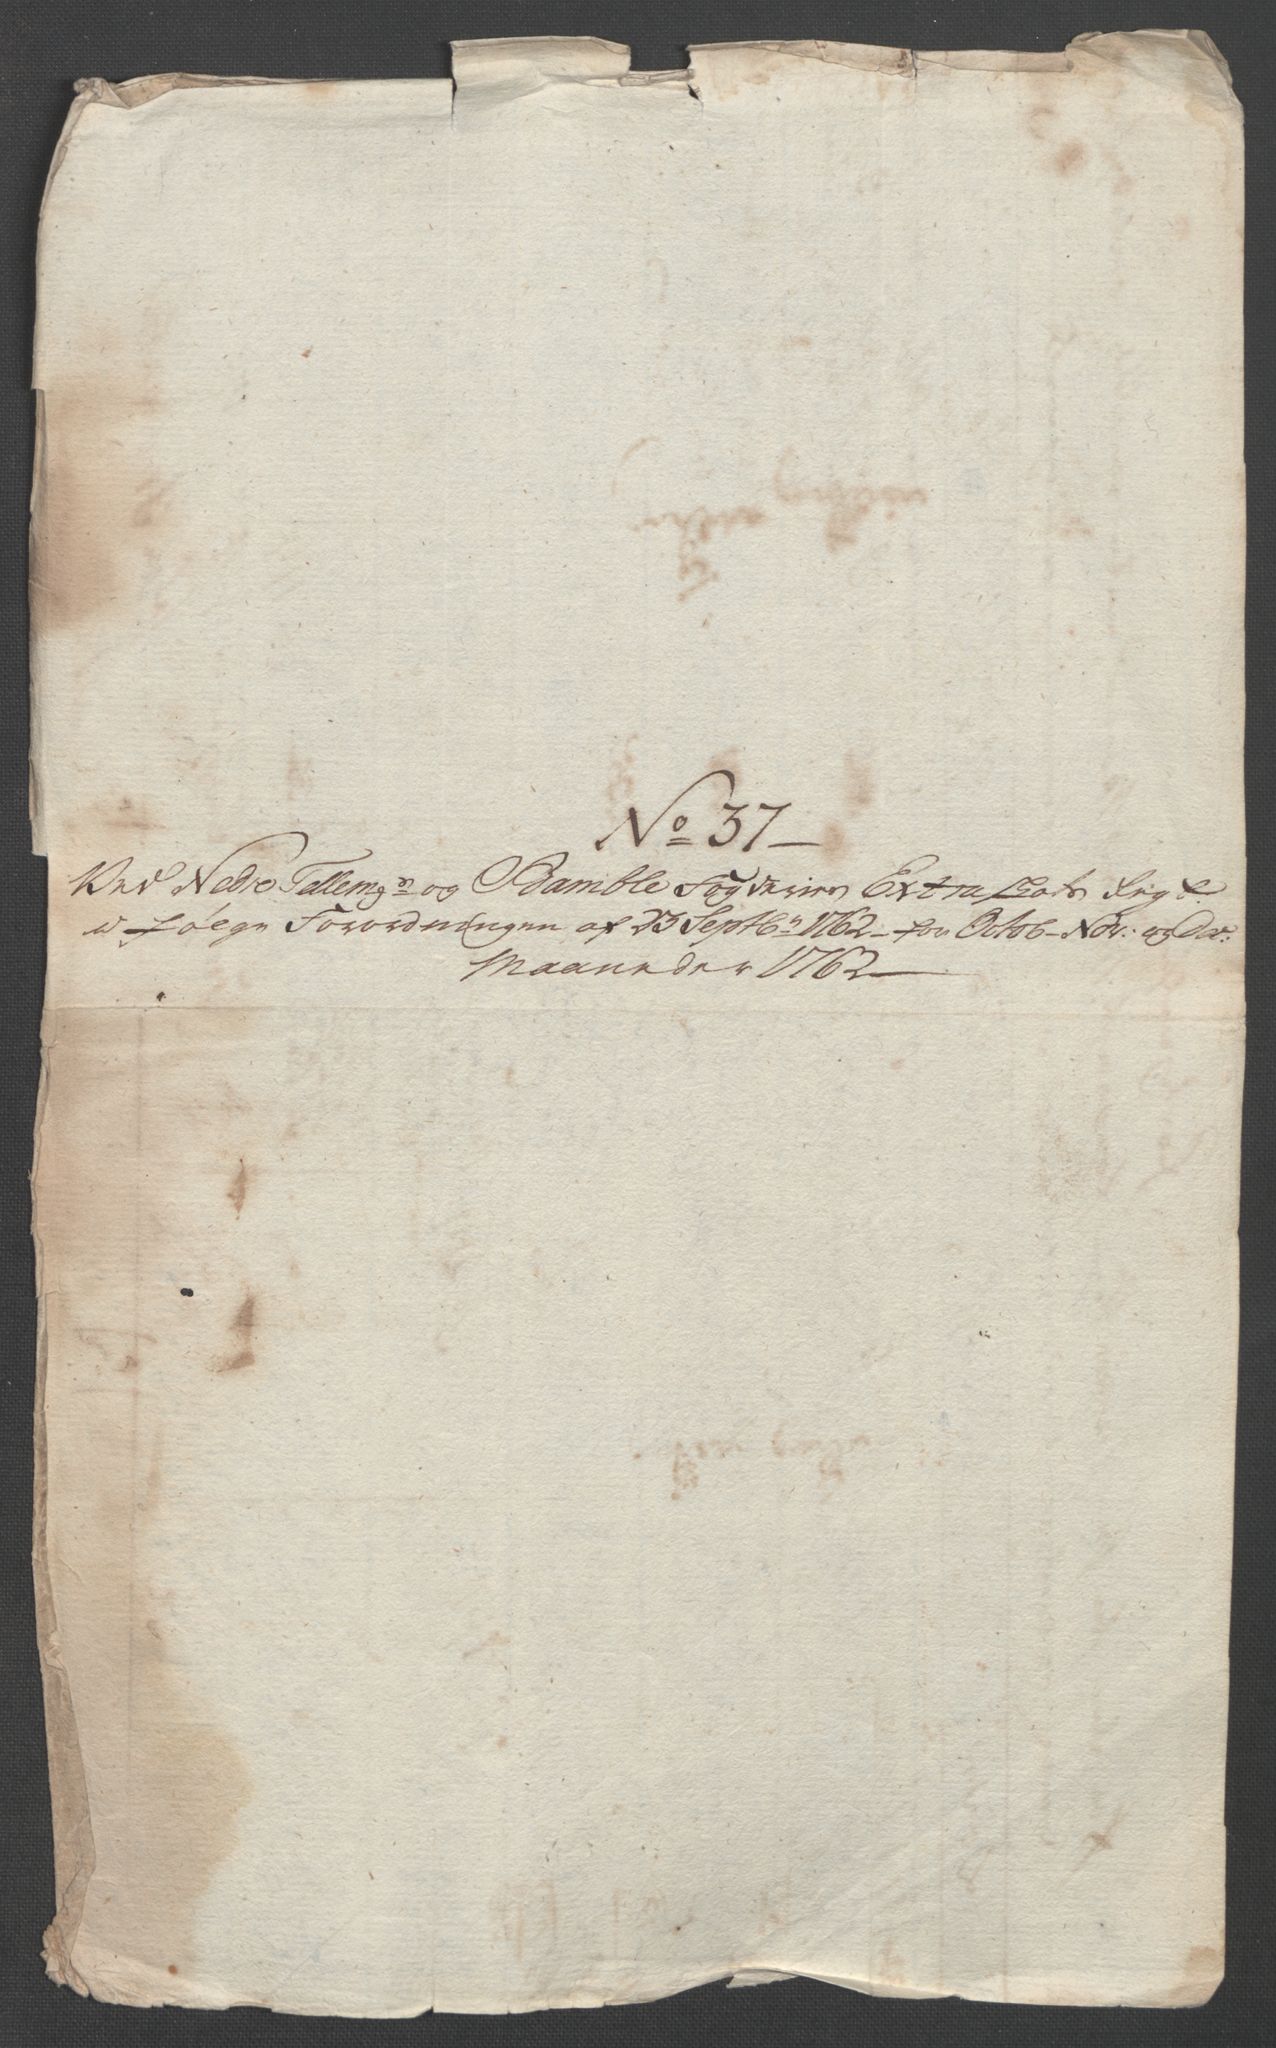 No 37
Ved Nedre Tellemg:n og Bamble Fogderier Extra Skats
følge Forordningen af 23 Septb:r 1762 for Octob- Nov: og Dec:
Maaneder 1762